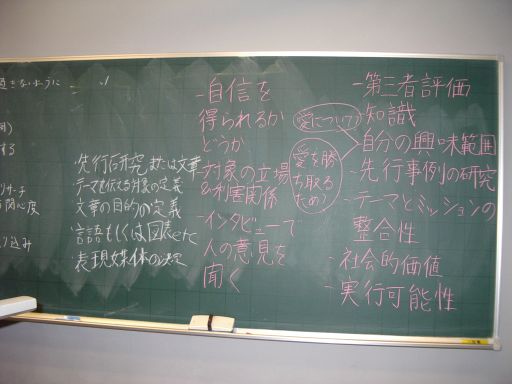 過ぎないように
する
リサーチ
関心度
り込み
・先行研究または文章
・テーマを伝える対象の定義
・文章の目的の定義
・言語もしくは図表etc
・表現媒体の決定
-自信を
得られるか
どうか
-対象の立場
&利害関係
-インタビューで
人の意見を
聞く
愛について?
愛を勝
ち取る
ため?
-第三者評価
-知識
-自分の興味範囲
-先行事例の研究
-テーマとミッションの
整合性
-社会的価値
-実行可能性